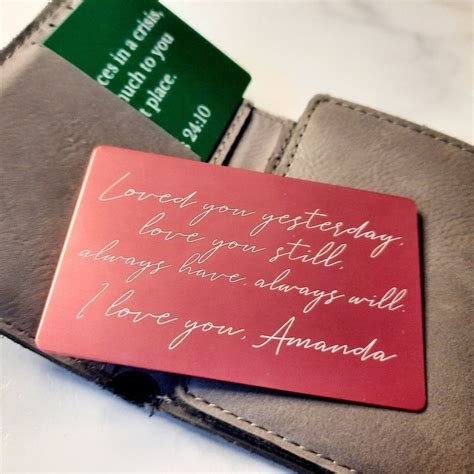 ces in a crisis,
uch to you
place.
24:10
Loved you yesterday,
love you still,
always have, always will.
I love you, Amanda